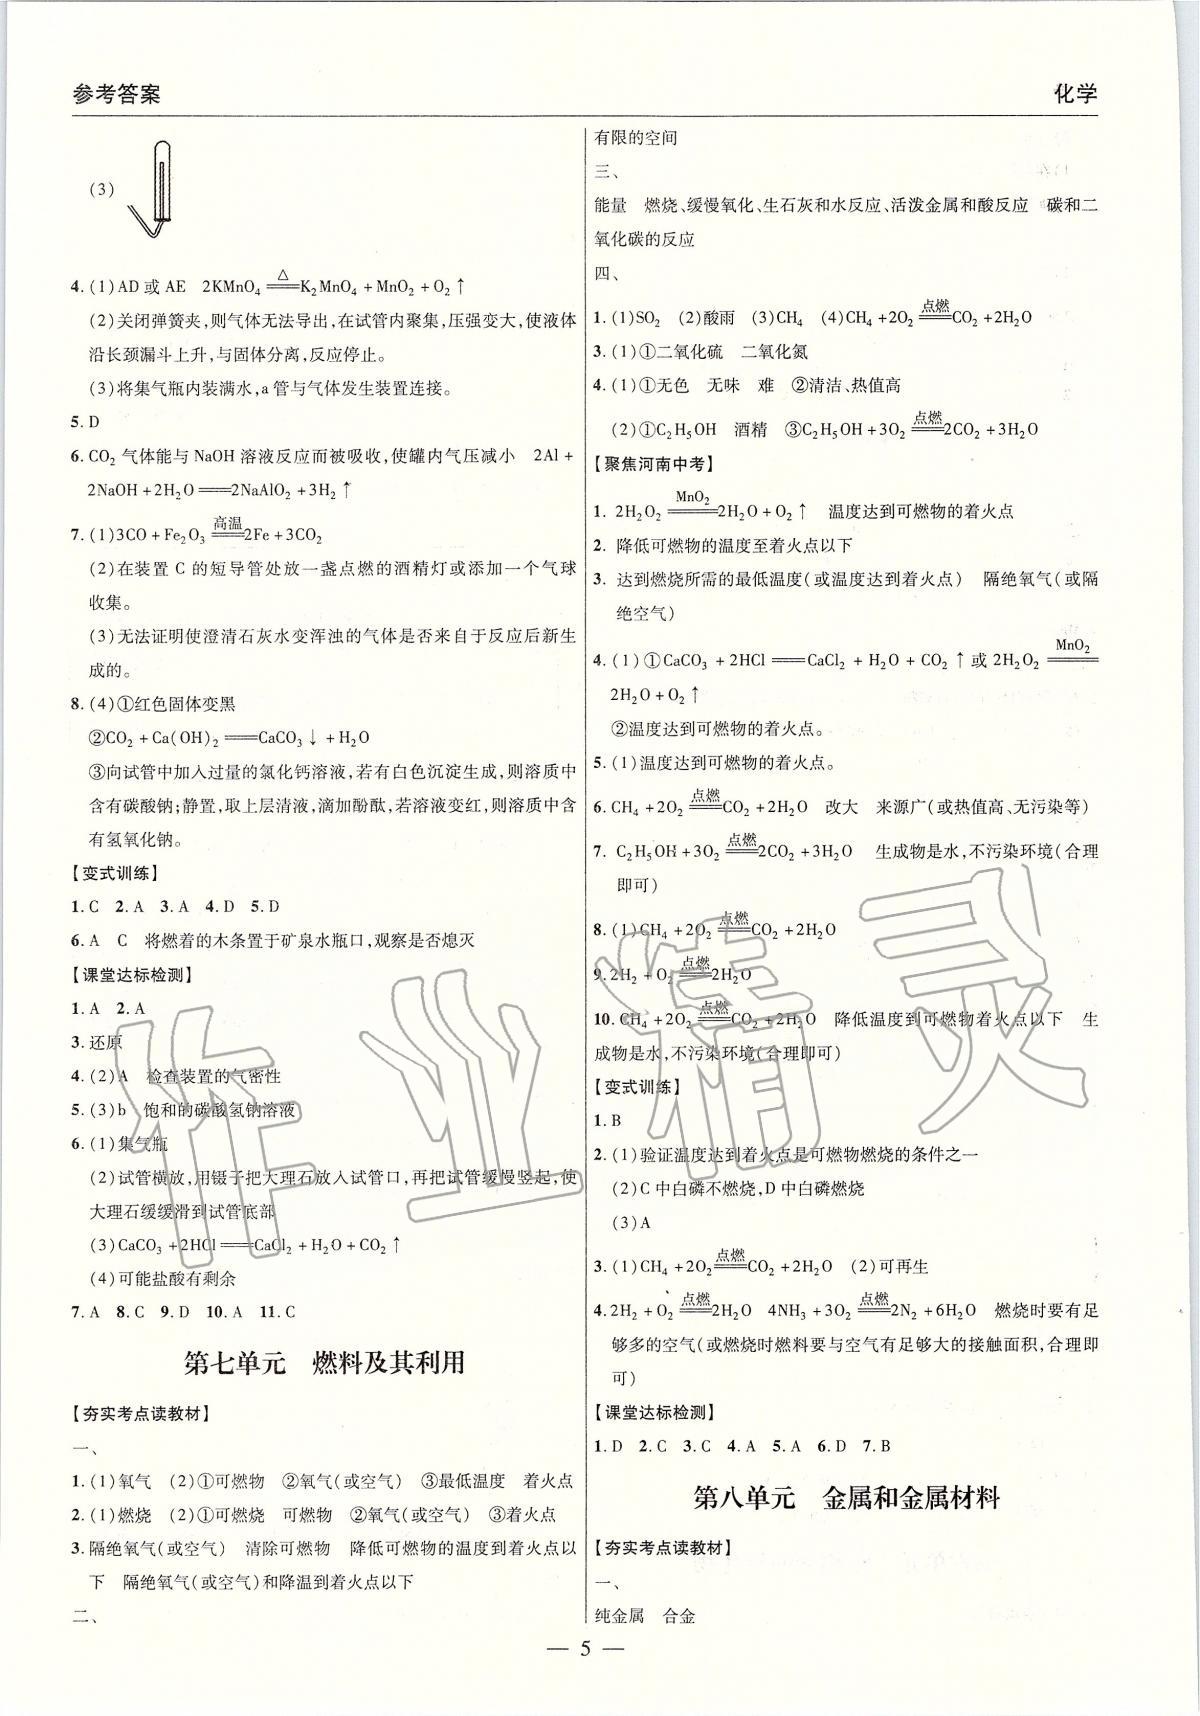 参考答案
化学
(3)
4. (1)AD或AE　2KMnO₄ =△= K₂MnO₄+MnO₂+O₂↑
(2)关闭弹簧夹,则气体无法导出,在试管内聚集,压强变大,使液体
沿长颈漏斗上升,与固体分离,反应停止。
(3)将集气瓶内装满水,a管与气体发生装置连接。
5. D
6. CO₂气体能与NaOH溶液反应而被吸收,使罐内气压减小　2Al+
2NaOH+2H₂O══2NaAlO₂+3H₂↑
7. (1)3CO+Fe₂O₃ =高温= 2Fe+3CO₂
(2)在装置C的短导管处放一盏点燃的酒精灯或添加一个气球
收集。
(3)无法证明使澄清石灰水变浑浊的气体是否来自于反应后新生
成的。
8. (4)①红色固体变黑
②CO₂+Ca(OH)₂══CaCO₃↓+H₂O
③向试管中加入过量的氯化钙溶液,若有白色沉淀生成,则溶质中
含有碳酸钠;静置,取上层清液,滴加酚酞,若溶液变红,则溶质中含
有氢氧化钠。
【变式训练】
1. C　2. A　3. A　4. D　5. D
6. A　C　将燃着的木条置于矿泉水瓶口,观察是否熄灭
【课堂达标检测】
1. A　2. A
3. 还原
4. (2)A　检查装置的气密性
5. (3)b　饱和的碳酸氢钠溶液
6. (1)集气瓶
(2)试管横放,用镊子把大理石放入试管口,再把试管缓慢竖起,使
大理石缓缓滑到试管底部
(3)CaCO₃+2HCl══CaCl₂+H₂O+CO₂↑
(4)可能盐酸有剩余
7. A　8. C　9. D　10. A　11. C
第七单元　燃料及其利用
【夯实考点读教材】
一、
1. (1)氧气　(2)①可燃物　②氧气(或空气)　③最低温度　着火点
2. (1)燃烧　(2)①可燃烧　可燃物　②氧气(或空气)　③着火点
3. 隔绝氧气(或空气)　清除可燃物　降低可燃物的温度到着火点以
下　隔绝氧气(或空气)和降温到着火点以下
二、
有限的空间
三、
能量　燃烧、缓慢氧化、生石灰和水反应、活泼金属和酸反应　碳和二
氧化碳的反应
四、
1. (1)SO₂　(2)酸雨　(3)CH₄　(4)CH₄+2O₂ =点燃= CO₂+2H₂O
3. (1)①二氧化硫　二氧化氮
4. (1)①无色　无味　难　②清洁、热值高
(2)①C₂H₅OH　酒精　③C₂H₅OH+3O₂ =点燃= 2CO₂+3H₂O
【聚焦河南中考】
1. 2H₂O₂ =MnO₂= 2H₂O+O₂↑　温度达到可燃物的着火点
2. 降低可燃物的温度至着火点以下
3. 达到燃烧所需的最低温度(或温度达到着火点)　隔绝氧气(或隔
绝空气)
4. (1)①CaCO₃+2HCl══CaCl₂+H₂O+CO₂↑或2H₂O₂ =MnO₂=
2H₂O+O₂↑
②温度达到可燃物的着火点。
5. (1)温度达到可燃物的着火点。
6. CH₄+2O₂ =点燃= CO₂+2H₂O　改大　来源广(或热值高、无污染等)
7. C₂H₅OH+3O₂ =点燃= 2CO₂+3H₂O　生成物是水,不污染环境(合理
即可)
8. (1)CH₄+2O₂ =点燃= CO₂+2H₂O
9. 2H₂+O₂ =点燃= 2H₂O
10. CH₄+2O₂ =点燃= CO₂+2H₂O　降低温度到可燃物着火点以下　生
成物是水,不污染环境(合理即可)
【变式训练】
1. B
2. (1)验证温度达到着火点是可燃物燃烧的条件之一
(2)C中白磷不燃烧,D中白磷燃烧
(3)A
3. (1)CH₄+2O₂ =点燃= CO₂+2H₂O　(2)可再生
4. 2H₂+O₂ =点燃= 2H₂O　4NH₃+3O₂ =点燃= 2N₂+6H₂O　燃烧时要有足
够多的空气(或燃烧时燃料要与空气有足够大的接触面积,合理即
可)
【课堂达标检测】
1. D　2. C　3. C　4. A　5. A　6. D　7. B
第八单元　金属和金属材料
【夯实考点读教材】
一、
纯金属　合金
作业精灵
— 5 —